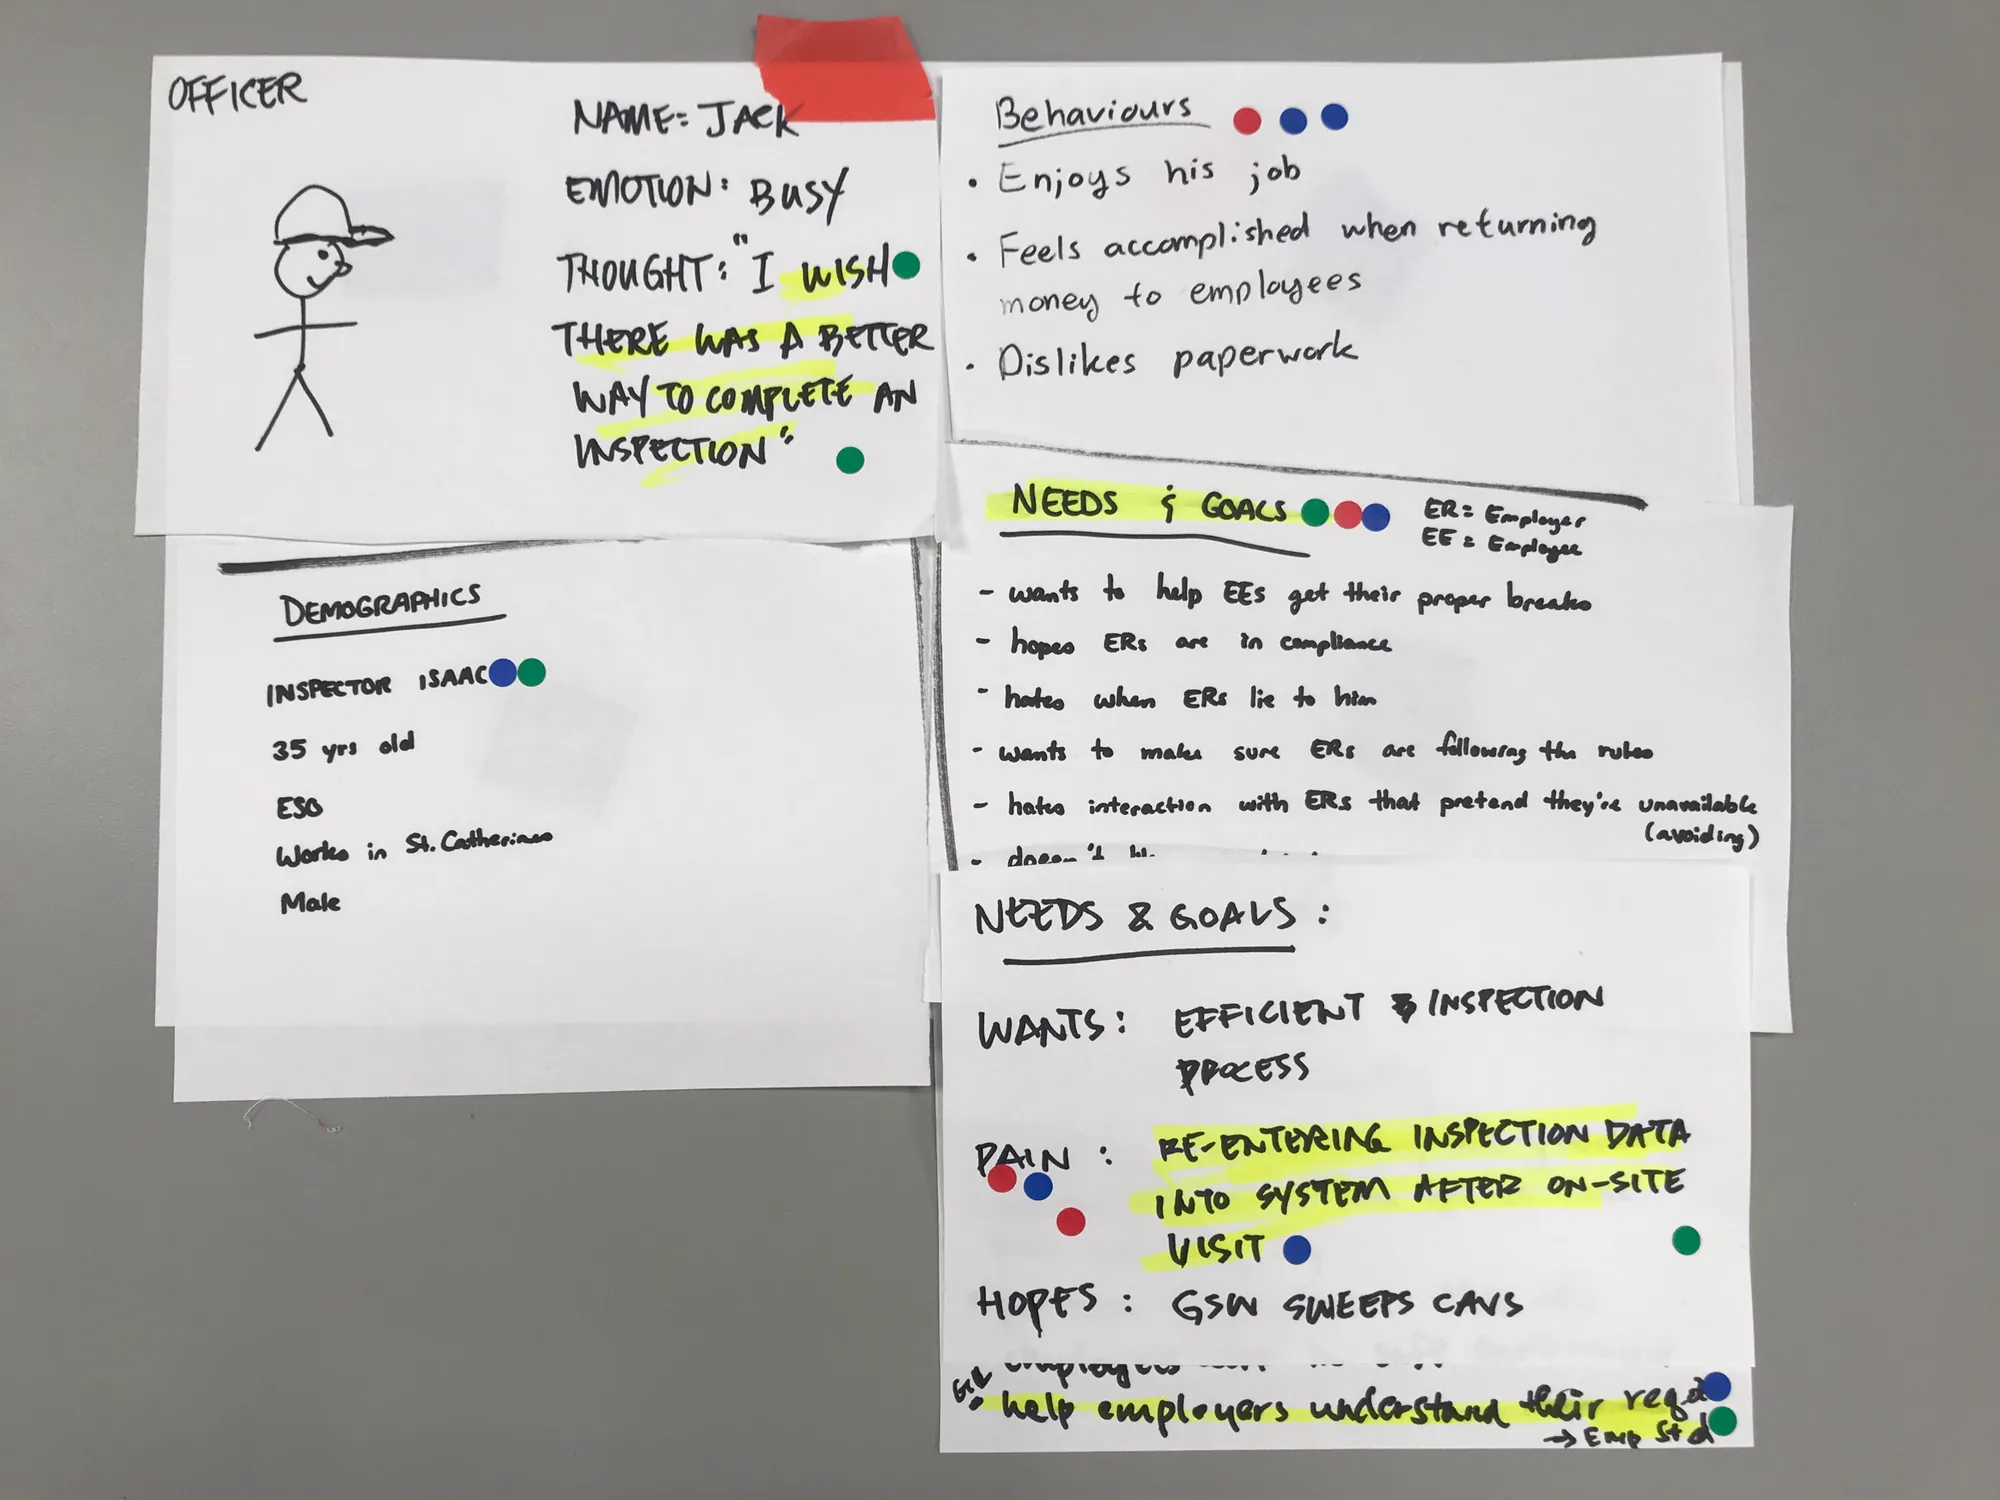 OFFICER
NAME: JACK
EMOTION: BUSY
THOUGHT: "I WISH
THERE WAS A BETTER
WAY TO COMPLETE AN
INSPECTION"
Behaviours
• Enjoys his job
• Feels accomplished when returning
money to employees
• Dislikes paperwork
DEMOGRAPHICS
INSPECTOR ISAAC
35 yrs old
ESO
Works in St. Catherines
Male
NEEDS & GOALS
ER = Employer
EE = Employee
- wants to help EEs get their proper breaks
- hopes ERs are in compliance
- hates when ERs lie to him
- wants to make sure ERs are following the rules
- hates interaction with ERs that pretend they're unavailable
(avoiding)
- doesn't
NEEDS & GOALS :
WANTS : EFFICIENT INSPECTION
PROCESS
PAIN : RE-ENTERING INSPECTION DATA
INTO SYSTEM AFTER ON-SITE
VISIT
HOPES : GSW SWEEPS CAVS
employees
help employers understand their reqd
→ Emp Std